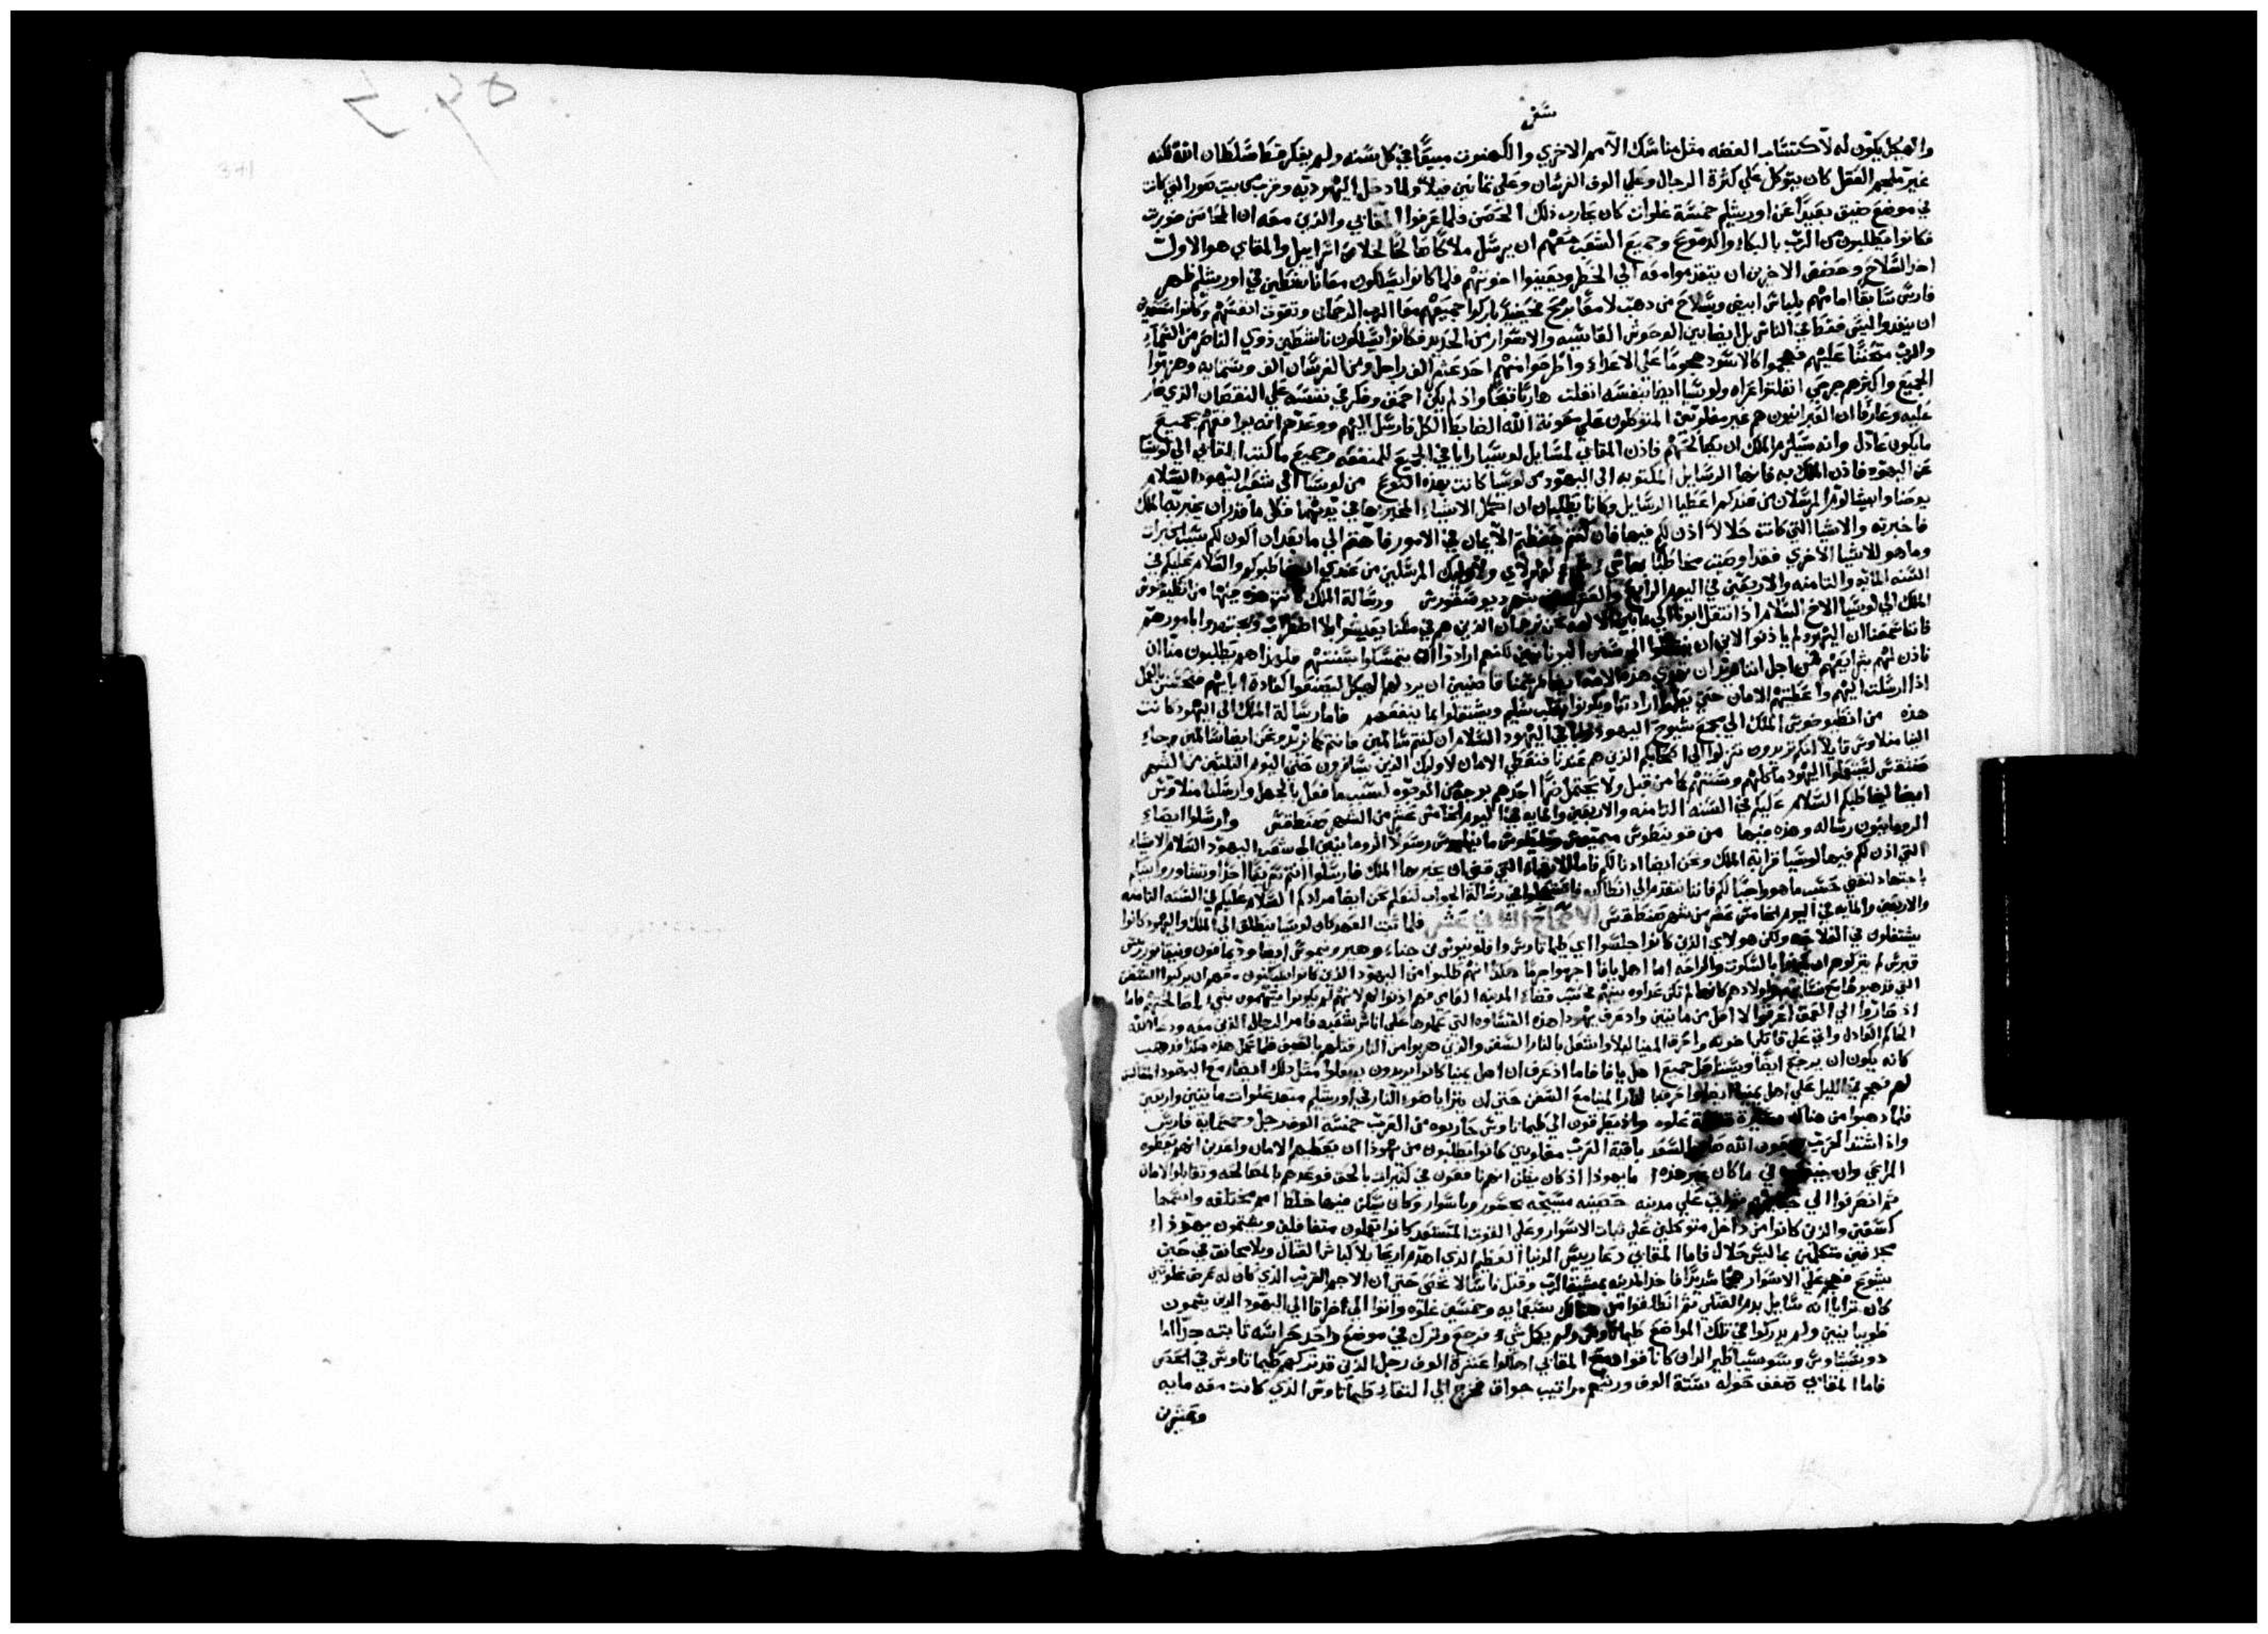 سفر
والهيكل يكون له لاكتساب الفضه مثل مناسك الامم الاخري والكهنوت مبيعًا في كل سنه ولم يفكر قط سلطان الله لكنه
غير ملجم العقل كان يتوكل علي كثرة الرجال وعلي الوف الفرسان وعلي ثمانين فيلاً ولما دخل اليهوديه وقرب من بيت صور التي كانت
في موضع ضيق بعيدًا عن اورشليم خمسة غلوات كان يحارب ذلك الحصن فلما عرفوا المقابي والذين معه ان المحاصن حوربت
فكانوا يطلبون من الرب بالبكاء والدموع وجميع الشعب معهم ان يرسل ملاكًا صالحًا لخلاص اسراييل والمقابي هو الاول
اخد السلاح وحضض الاخرين ان يتقدموا معه الي الخطر ويعينوا اخوتهم فلما كانوا يسلكون معًا ناشطين في اورشليم ظهر
فارس سابقًا امامهم بلباس ابيض وسلاح من دهب لامعًا برمح فحينيذ باركوا جميعهم معًا الرب الرحمان وتقوت انفسهم وكانوا مستعدين
ان ينفدوا ليس فقط في الناس بل ايضا بين الوحوش القاسيه والاسوار من الحديد فكانوا يسلكون ناشطين ذوي الناصر من السماء
والرب متحننًا عليهم فهجموا كالاسود هجومًا علي الاعداء واطرحوا منهم احد عشر الف راجل ومن الفرسان الف وستمايه وهزموا
الجميع واكثرهم جرحي انفلتوا عراه ولوسيا ايضا بنفسه انفلت هاربًا قبيحًا واذ لم يكن احمق وفكر في نفسه علي النقصان الذي صار
عليه وعارفًا ان العبرانيون هم غير مغلوبين المتوكلون علي معونة الله الضابط الكل فارسل اليهم ووعدهم انه يوافقهم بجميع
ما يكون عادل وانه سيلزم الملك ان يصالحهم فاذن المقابي لمسايل لوسيا رايا في الجميع للمنفعه وجميع ما كتب المقابي الي لوسيا
عن اليهود فاذن الملك به فانها الرسايل المكتوبه الي اليهود من لوسيا كانت بهذه النوع من لوسيا الي شعب اليهود السلام
يوحنا وابيشالوم المرسلان من عندكم اعطيا الرسايل وكانا يطلبان ان اكمل الاشياء المخبر بها في يديهما فكل ما قدر ان يخبر بها الملك
فاخبرته والاشيا التي كانت حلالاً اذن لكم فيها فان كنتم حفظتم الايمان في الامور فاهتم الي ما بعد ان اكون لكم سبب الخيرات
وما هو للاشيا الاخري فقد اوصيت مخاطبًا لهولاي ولاوليك المرسلين من عندي ان يخاطبوكم والسلام عليكم في
السنه المايه والثامنه والاربعين في اليوم الرابع والعشرين من شهر ديوسقورس ورسالة الملك كانت هذه جيتها من انطيوخوس
الملك الي لوسيا الاخ السلام اذ انتقل ابونا الي ما بين الالهه نحن نرجوا ان الذين هم في ملكنا يعيشوا بلا اضطراب ويجتهدوا بامورهم
فاننا سمعنا ان اليهود لم ياذنوا لابي ان ينتقلوا الي سنن اليونانيين لكنهم ارادوا ان يتمسكوا بسنتهم فلهذا هم يطلبون منا ان
ناذن لهم شرايعهم فمن اجل اننا نريد ان تهدي هذه الامه ايضا قاضيين ان يرد لهم الهيكل ليصنعوا كعادة ابايهم فتحسن بالعمل
اذا ارسلت اليهم واعطيتهم الامان حتي يعلموا ارادتنا ويكونوا بقلب سليم ويشتغلوا بما ينفعهم فاما رسالة الملك الي اليهود كانت
هذه من انطيوخوس الملك الي مجمع شيوخ اليهود وباقي اليهود السلام ان كنتم سالمين فانتم كما نريد ونحن ايضا سالمين وجاء
الينا منلاوس قايلاً انكم تريدون تنزلوا الي اصحابكم الذين هم عندنا فنعطي الامان لاوليك الذين يسافرون حتي اليوم الثلثين من الشهر
صنتقس ليستعملوا اليهود ماكلهم وسنتهم كما من قبل ولا يحتمل ضرًا احدهم بوجه من الوجوه لسبب ما فعل بالجهل وارسلنا منلاوس
ايضا ليخاطبكم السلام عليكم في السنه الثامنه والاربعين والمايه في اليوم الخامس عشر من الشهر صنطقس وارسلوا ايضاء
الرومانيون رساله وهذه منيها من قوينطوس ميميوس وطيطوس مانيليوس رسولا الرومانيين الي شعب اليهود السلام الاشياء
التي اذن لكم فيها لوسيا قرابة الملك ونحن ايضا ادنا لكم فاما الاشياء التي قضي ان يخبر بها الملك فارسلوا انتم سريعًا احدًا وتشاوروا بينكم
باجتهاد لنقضي حسب ما هو واجبًا لكم فاننا نتقدم الي انطاكيه فاعجلوا في رسالة الجواب لنعلم نحن ايضا مرادكم السلام عليكم في السنه الثامنه
والاربعين والمايه في اليوم الخامس عشر من شهر صنطقس الاصحاح الثاني عشر فلما تمت العهد كان لوسيا ينطلق الي الملك واليهود كانوا
يشتغلون في الفلاحه ولكن هولاي الذين كانوا جلسوا اي طيماتاوس وافلونيوس من جناء وهيرونيموس ايضا وديمافون ونيقانور ريس
قبرس لم يتركوهم ان يعيشوا بالسكوت والراحه اما اهل يافا اجهزوا جرمًا هكذا انهم طلبوا من اليهود الذين كانوا يسكنون معهم ان يركبوا السفن
التي قد هيوها مع نسايهم واولادهم كانها لم تكن عداوه بينهم
اذ صاروا الي العمق اغرقوا لا اقل من مايتين واد عرف يهودا هذه القساوه التي عملوها علي اناس شعبه فامر الرجال الذين معه ودعا الله
الحاكم العادل واتي علي قاتلي اخوته واحرق المينا ليلاً واشعل بالنار السفن والذين هربوا من النار قتلهم بالسيف فلما عمل هذه هكذا فدهب
كانه يكون ان يرجع ايضًا ويستاصل جميع اهل يافا فاما اذ عرف ان اهل يمنيا كانوا يريدون يعملوا مثل ذلك ايضًا مع اليهود الساكنين
لهم فهجم في الليل علي اهل يمنيا ايضا واحرق بالنار المينا مع السفن حتي ان يترايا ضوء النار في اورشليم منعد غلوات مايتين واربعين
فلما دهبوا من هناك مسيرة تسعة غلوه واذ يطرقون الي طيماتاوس حاربوه من العرب خمسة الوف رجل وخمسمايه فارس
واذ اشتد الحرب وبعون الله صار السعد باقية العرب مغلوبين كانوا يطلبون من يهودا ان يعطيهم الامان واعدين انهم يعطوه
المراعي وان ينفعوه في ما كان غير هذه فاما يهودا اذ كان يظن انهم نافعون في كثيرات بالحق فوعدهم بالمصالحه وتقابلوا الامان
ثم انصرفوا الي خيامهم ثم اتي علي مدينه حصينه مسيجه بجسور وباسوار وكان يسكن فيها خلط امم مختلفه واسمها
كسفين والذين كانوا من داخل متوكلين علي ثبات الاسوار وعلي القوت المستعد كانوا يعملون متغافلين ويشتمون يهودا
مجدفين متكلمين بما ليس حلال فاما المقابي دعا رييس الدنيا العظيم الذي اهدم اريحا بلا كباش القتال وبلا مجانق في حين
يشوع فهجم علي الاسوار هجمًا شديدًا فاخذ المدينه بمشية الرب وقتل ناسًا لا تحصي حتي ان الاجم القريب الذي كان له عرض غلوتين
كان ترايا انه سايل بدم القتلي ثم انطلقوا من هناك سبعمايه وخمسين غلوه واتوا الي اخراقا الي اليهود الدين يسمون
طوبيانيين ولم يدركوا في تلك المواضع طيماتاوس ولم يكمل شيء فرجع وترك في موضع واحد حراسه ثابته جدًا اما
دوسيتاوس وسوسيباطير الدان كانا قوادًا مع المقابي اهلكوا عشرة الوف رجل الذين قد تركهم طيماتاوس في الحصن
فاما المقابي صفف حوله ستة الوف ورتبهم مراتيب جواق فخرج الي القا طيماتاوس الذي كانت معه مايه
وعشرين